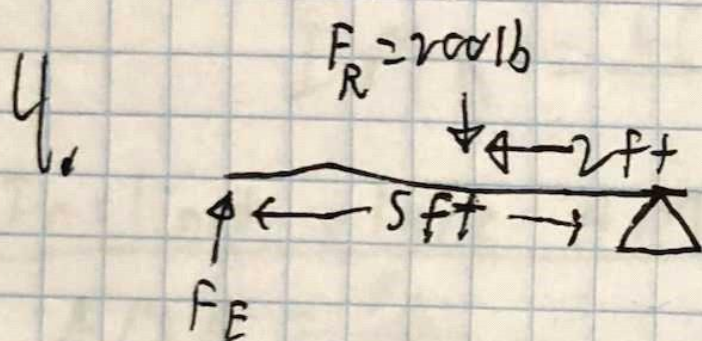 F_R = 200lb
4.
2ft
5ft
F_E